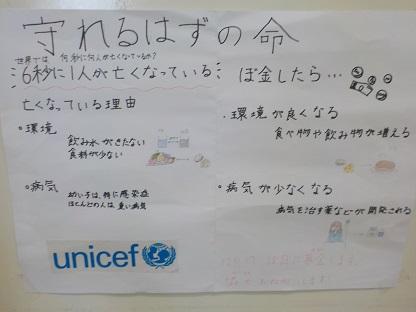 守れるはずの命
世界では 何秒に何人が亡くなっているか?
6秒に1人が亡くなっている
亡くなっている理由
・環境
飲み水がきたない
食料が少ない
・病気
幼い子は、特に感染症
ほとんどの人は 重い病気
unicef
ぼ金したら…
・環境が良くなる
食べ物や飲み物が増える
・病気が少なくなる
病気を治す薬などが開発される